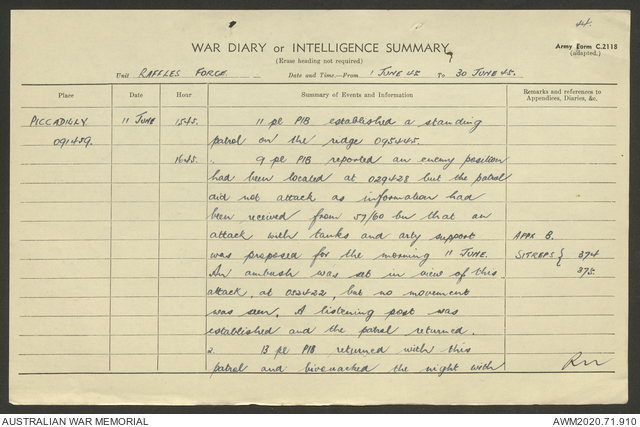 44.
WAR DIARY or INTELLIGENCE SUMMARY
Army Form C.2118
(adapted.)
(Erase heading not required)
Unit RAFFLES FORCE Date and Time—From 1 JUNE 45 To 30 JUNE 45.
Place Date Hour Summary of Events and Information Remarks and references to
Appendices, Diaries, &c.
PICCADILLY 11 JUNE 1545. 11 pl PIB established a standing
091459. patrol on the ridge 095445.
1645. 9 pl PIB reported an enemy position
had been located at 029428 but the patrol
did not attack as information had
been received from 57/60 bn that an
attack with tanks and arty support APPX B.
was proposed for the morning 11 JUNE. SITREPS { 374
An ambush was set in view of this 375.
attack, at 052422, but no movement
was seen. A listening post was
established and the patrol returned.
2. 13 pl PIB returned with this
patrol and bivouacked the night with
AUSTRALIAN WAR MEMORIAL AWM2020.71.910